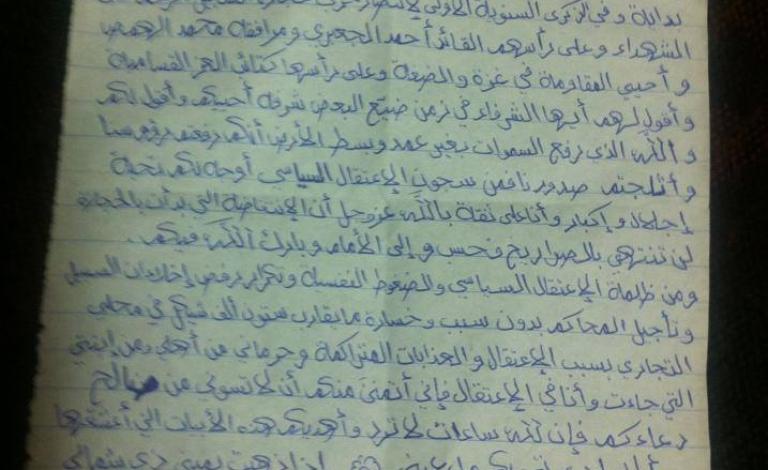 بداية وفي الذكرى السنوية الأولى لانتصار
الشهداء وعلى رأسهم القائد أحمد الجعبري ومرافقه محمد الهمص
وأحيي المقاومة في غزة والضفة وعلى رأسها كتائب العز القسامية
وأقول لهم أيها الشرفاء في زمن ضيّع البعض شرفه أحييكم وأقول لكم
والله الذي رفع السموات بغير عمد وبسط الأرض أنكم رفعتم رؤوسنا
وأثلجتم صدورنا فمن سجون الإعتقال السياسي أوجه لكم تحية
إجلال وإكبار وأنا على ثقة بالله عز وجل أن الإنتفاضة التي بدأت بالحجارة
لن تنتهي بالصواريخ فحسب وإلى الأمام وبارك الله فيكم.
ومن ظلمة الإعتقال السياسي والضغوط النفسية وتكرار رفض إخلاءات السبيل
وتأجيل المحاكم بدون سبب وخسارة ما يقارب ستون ألف شيكل في محلي
التجاري بسبب الإعتقال والعذابات المتراكمة وحرماني من أهلي ومن إبنتي
التي جاءت وأنا في الإعتقال فإني أتمنى منكم أن لا تنسوني من صالح
دعاءكم فإن لله ساعات لا ترد وأهديكم هذه الأبيات التي أعشقها
إذا ذهبت يميني ذي شمالي